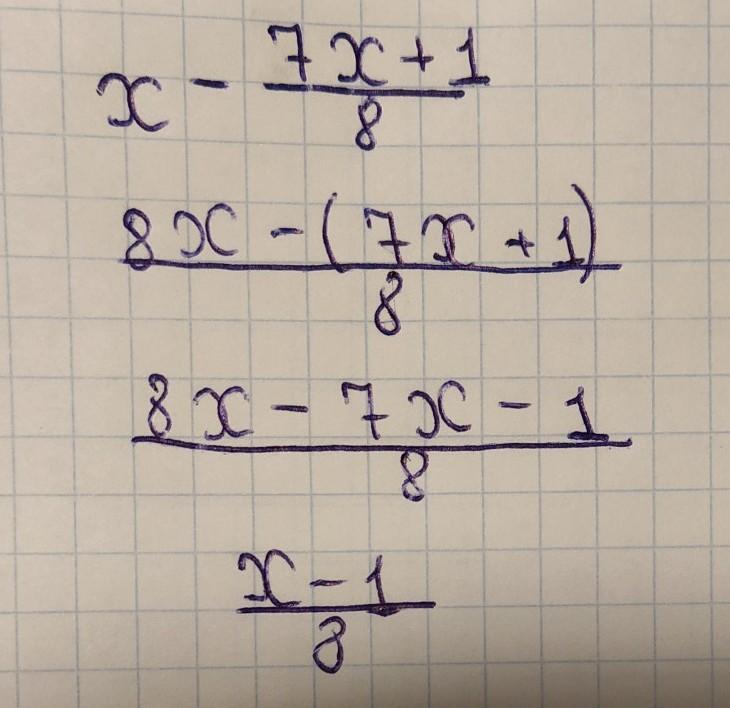 x - \frac{7x+1}{8}
\frac{8x-(7x+1)}{8}
\frac{8x-7x-1}{8}
\frac{x-1}{8}